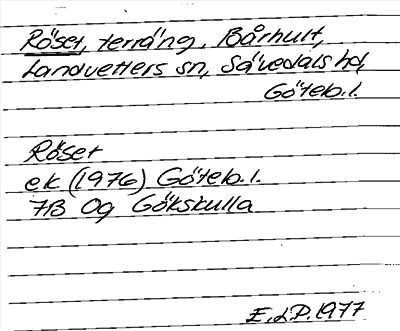 Röset, terräng, Bårhult,
Landvetters sn, Sävedals hd,
Göteb. l.
Röset
ek (1976) Göteb. l.
7B 0g Gökskulla
E.d.P. 1977